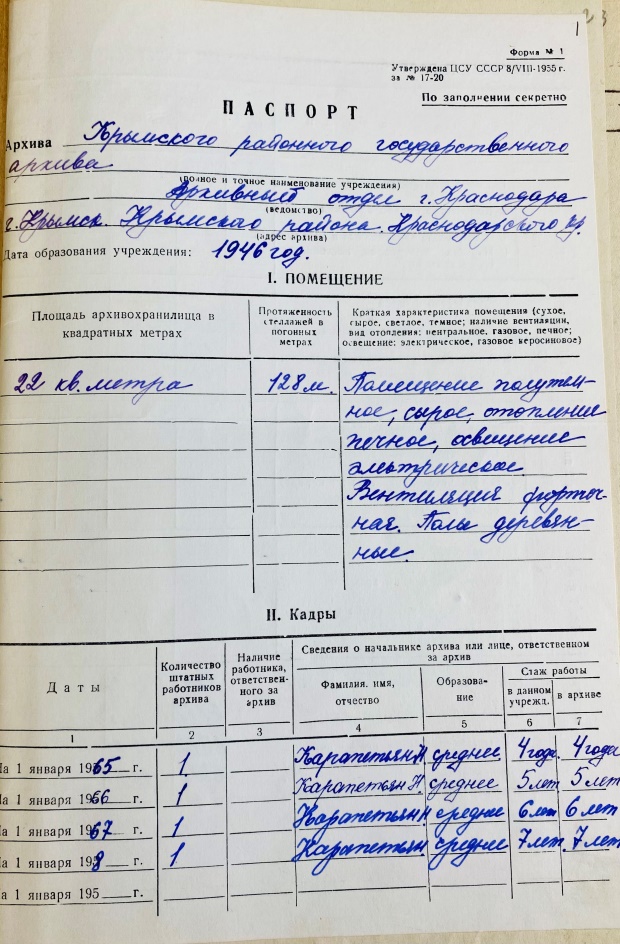 1 2 3
Форма № 1
Утверждена ЦСУ СССР 8/VIII-1955 г.
за № 17-20
По заполнении секретно
ПАСПОРТ
Архива Крымского районного государственного
архива
(полное и точное наименование учреждения)
Архивный отдел г. Краснодара
(ведомство)
г. Крымск. Крымского района. Краснодарского кр.
(адрес архива)
Дата образования учреждения: 1946 год.
I. ПОМЕЩЕНИЕ
Площадь архивохранилища в
квадратных метрах
Протяженность
стеллажей в
погонных
метрах
Краткая характеристика помещения (сухое,
сырое, светлое, темное; наличие вентиляции,
вид отопления: центральное, газовое, печное;
освещение: электрическое, газовое керосиновое)
22 кв. метра
128 м.
Помещение полутем-
ное, сырое, отопление
печное, освещение
электрическое.
Вентиляция форточ-
ная. Полы деревян-
ные.
II. Кадры
Даты
Количество
штатных
работников
архива
Наличие
работника,
ответствен-
ного за
архив
Сведения о начальнике архива или лице, ответственном
за архив
Фамилия, имя,
отчество
Образова-
ние
Стаж работы
в данном
учрежд.
в архиве
1 2 3 4 5 6 7
На 1 января 1965 г. 1 Карапетьян Н. среднее 4 года. 4 года
На 1 января 1966 г. 1 Карапетьян Н. среднее 5 лет 5 лет
На 1 января 1967 г. 1 Карапетьян Н. среднее 6 лет 6 лет
На 1 января 1958 г. 1 Карапетьян. среднее 7 лет. 7 лет
На 1 января 195 г.